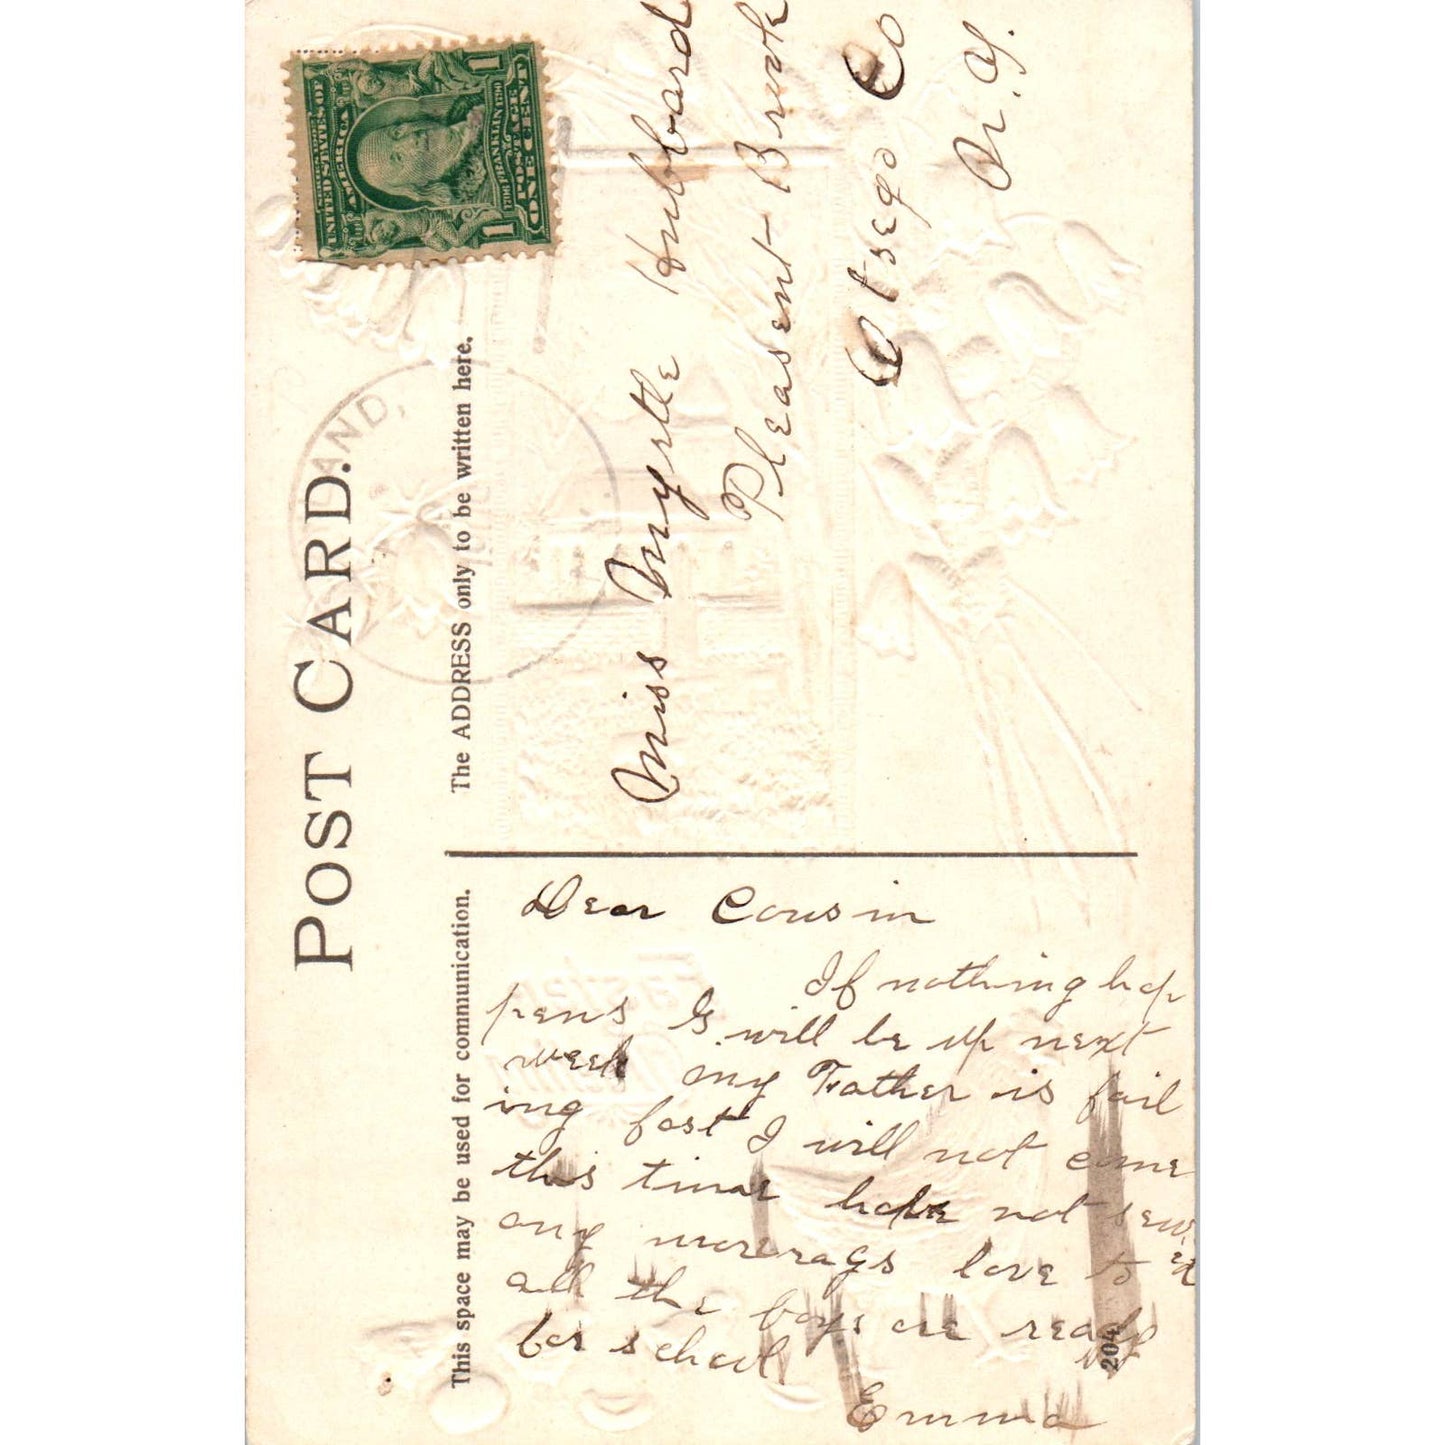 POST CARD.
This space may be used for communication.
The ADDRESS only to be written here.
UNITED STATES OF
AMERICA
1706 FRANKLIN 1790
POSTAGE
ONE CENT
1 1
AND,
Miss Myrtle Hubbard
Pleasent Brook
Otsego Co
N. Y.
Dear Cousin
If nothing hap
pens I will be up next
week my Father is fail
ing fast I will not come
this time have not sewed
any more rags love to
all the boys are ready
for school
Emma
204